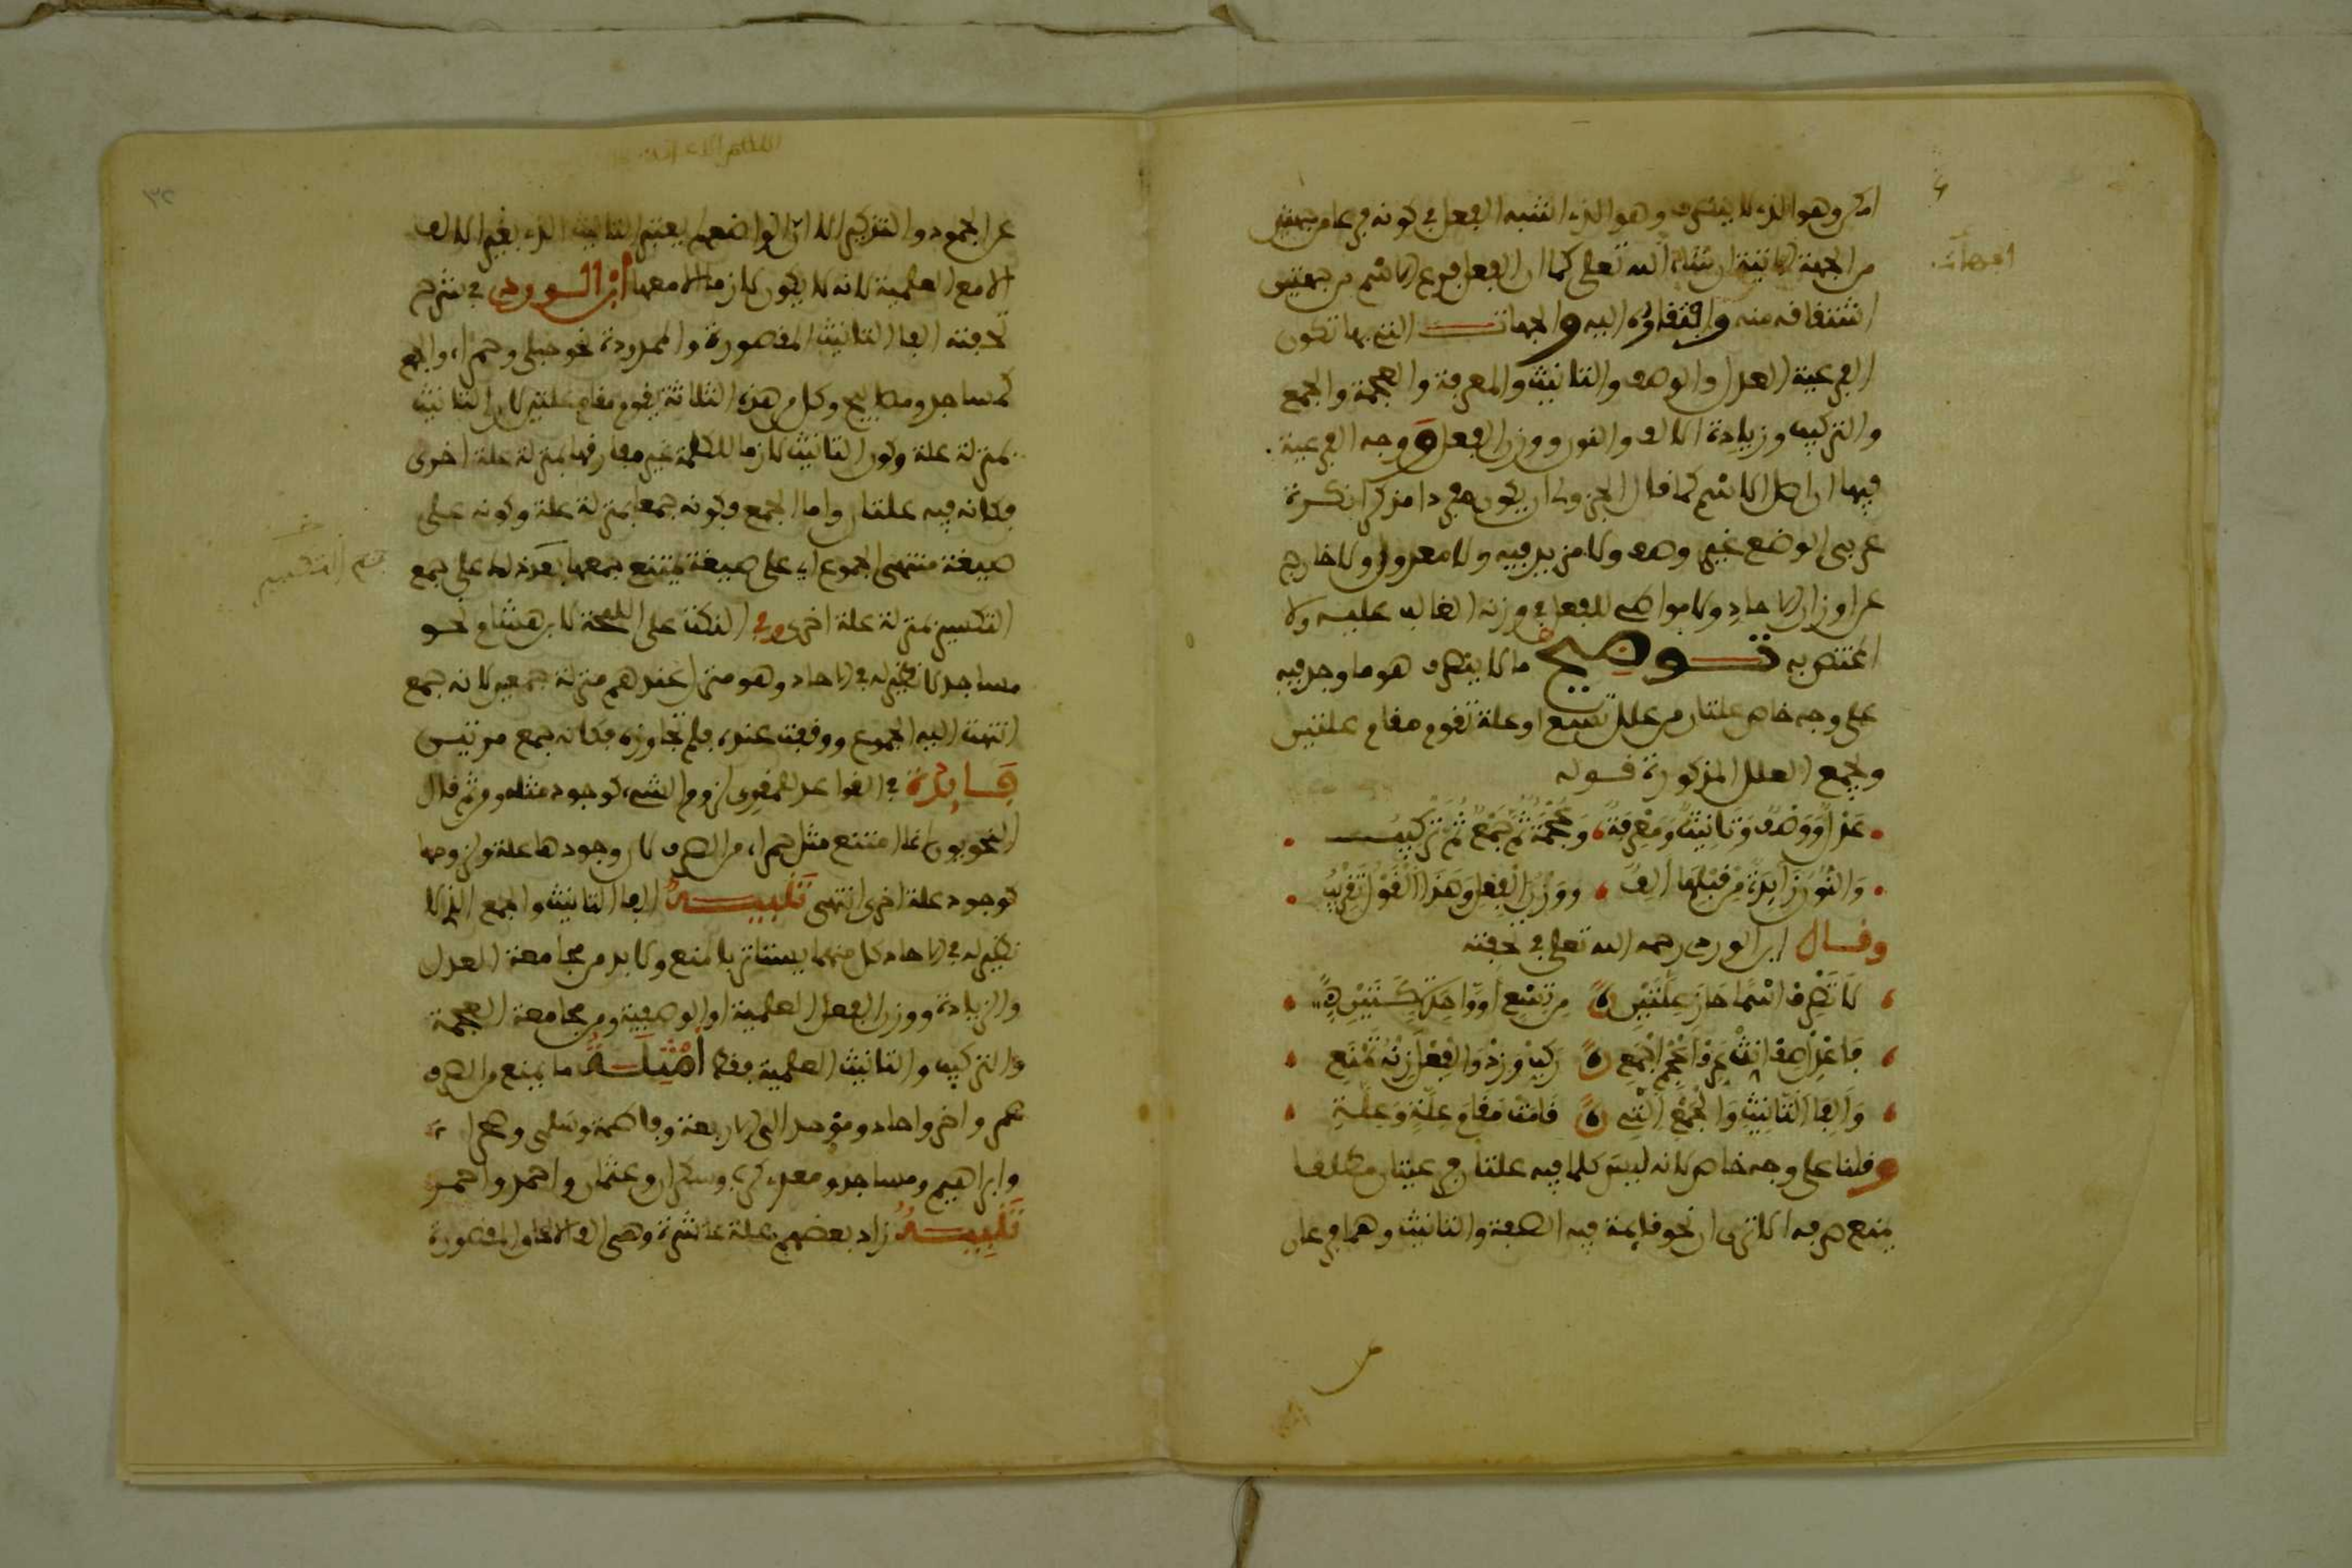 امكن وهو الذي لا ينصرف وهو الذي اشبه الفعل في كونه فرعا من جهتين
من الجهة الاتية ان شاء الله تعلى كما ان الفعل فرع الاسم من جهتين
اشتقاقه منه وافتقاره اليه والجهات التي بها تكون
الفرعية العدل والوصف والتانيث والمعرفة والعجمة والجمع
والتركيب وزيادة الالف والنون ووزن الفعل ووجه الفرعية
فيها ان اصل الاسم كما قال الجزولي ان يكون مفردا مذكرا نكرة
عربي الوضع غير وصف ولا مزيد فيه ولا معدول ولا خارج
عن اوزان الاحاد ولا مواطئ للفعل في وزنه الغالب عليه ولا
المختص به توضيح ما لا ينصرف هو ما وجد فيه
على وجه خاص علتان من علل تسع او علة تقوم مقام علتين
ويجمع العلل المذكورة قوله
عَدْلٌ وَوَصْفٌ وَتَانِيثٌ وَمَعْرِفَةٌ وَعُجْمَةٌ ثُمَّ جَمْعٌ ثُمَّ تَرْكِيبُ
وَالنُّونُ زَائِدَةً مِنْ قَبْلِهَا أَلِفٌ وَوَزْنُ الْفِعْلِ وَهَذَا الْقَوْلُ تَقْرِيبُ
وقال ابن الوردي رحمه الله تعلى في تحفته
لَا تَصْرِفِ اسْمًا حَازَ عِلَّتَيْنِ مِنْ تِسْعٍ أَوْ وَاحِدَةً كَتَيْنِ
فَاعْدِلْ صِفْ انِّثْ عَرِّفْ اعْجِمْ اجْمَعِ رَكِّبْ وَزِدْ وَالْفِعْلَ زِنْهُ تَمْنَعِ
وَأَلِفَا التَّانِيثِ وَالْجَمْعُ الَّتِي قَامَتْ مَقَامَ عِلَّةٍ وَعِلَّةِ
وقلنا على وجه خاص لانه ليس كلما فيه علتان فرعيتان مطلقا
يمنع صرفه الا ترى ان نحو قايمة فيه الصفة والتانيث وهما فرعان
عن الجمود والتذكير الا ان الواضع لم يعتبر التانيث الذي بغير الالف
الا مع العلمية لانه لا يكون لازما الا معها ابن الوردي في شرح
تحفته الفا التانيث المقصورة والممدودة نحو حبلى وحمراء والجمع
كمساجد ومصابيح وكل من هذه الثلاثة يقوم مقام علتين لان التانيث
بمنزلة علة وكون التانيث لازما للكلمة غير مفارقها بمنزلة علة اخرى
فكانه فيه علتان واما الجمع فكونه جمعا بمنزلة علة وكونه على
صيغة منتهى الجموع اي على صيغة يمتنع جمعها بعد ذلك على جمع
التكسير بمنزلة علة اخرى وفي النكت على اللمحة لابن هشام نحو
مساجد لا نظير له في الاحاد وهو منزل عندهم منزلة جمعين لانه جمع
انتهت اليه الجموع ووقفت عنده فلم تجاوزه فكانه جمع مرتين
فَايِدَةٌ في القواعد للمقري لزوم الشيء كوجود مثله ومن ثم قال
النحويون انما امتنع مثل حمراء من الصرف لان وجودها علة ولزومها
كوجود علة اخرى انتهى تَنْبِيهٌ الفا التانيث والجمع الذي لا
نظير له في الاحاد كل منهما يستاثر بالمنع ولا بد من مجامعة العدل
والزيادة ووزن الفعل العلمية او الوصفية ومن مجامعة العجمة
والتركيب والتانيث العلمية فقط أَمْثِلَةُ ما يمنع من الصرف
عمر واخر واحاد وموحد الى الاربعة وفاطمة وسلمى وحمراء
وابراهيم ومساجد ومعدي كرب وسكران وعثمان واحمد واحمر
تَنْبِيهٌ زاد بعضهم علة عاشرة وهي الف الالحاق المقصورة
جمع التكسير
٣٢